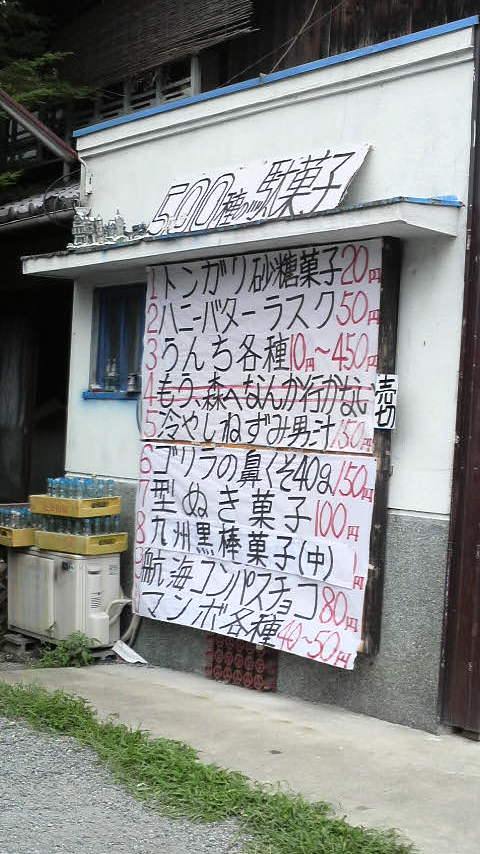 500種の駄菓子
1 トンガリ砂糖菓子20円
2 ハニーバターラスク50円
3 うんち各種10円~450円
4 もう、森へなんか行かない
売切
5 冷やしねずみ男汁150円
6 ゴリラの鼻くそ40g150円
7 型ぬき菓子100円
8 九州黒棒菓子(中)1円
9 航海コンパスチョコ80円
マンボ各種40~50円